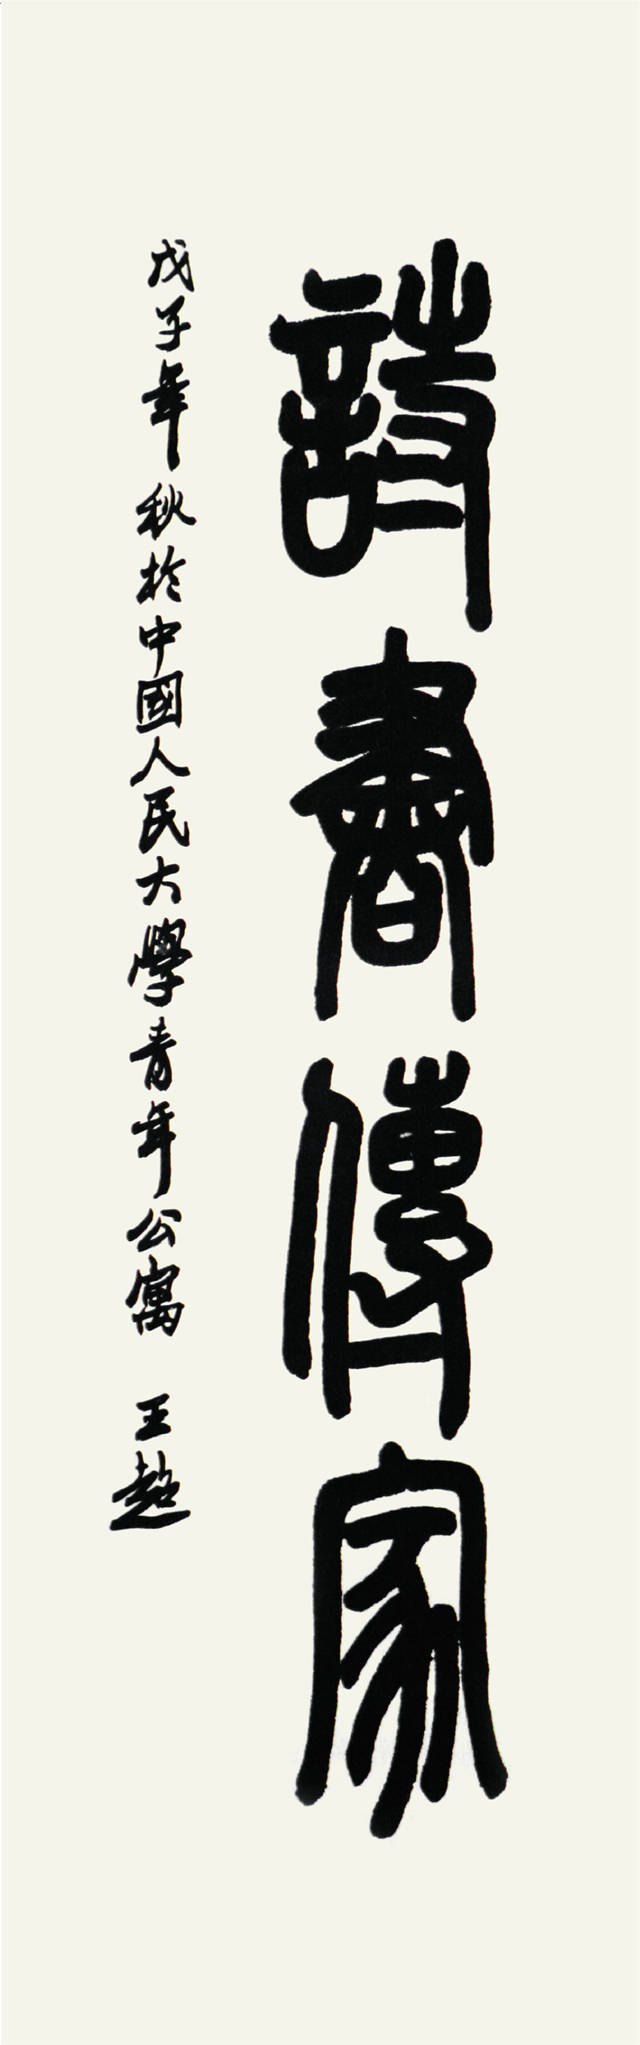 詩書傳家
戊子年秋於中國人民大學青年公寓 王超